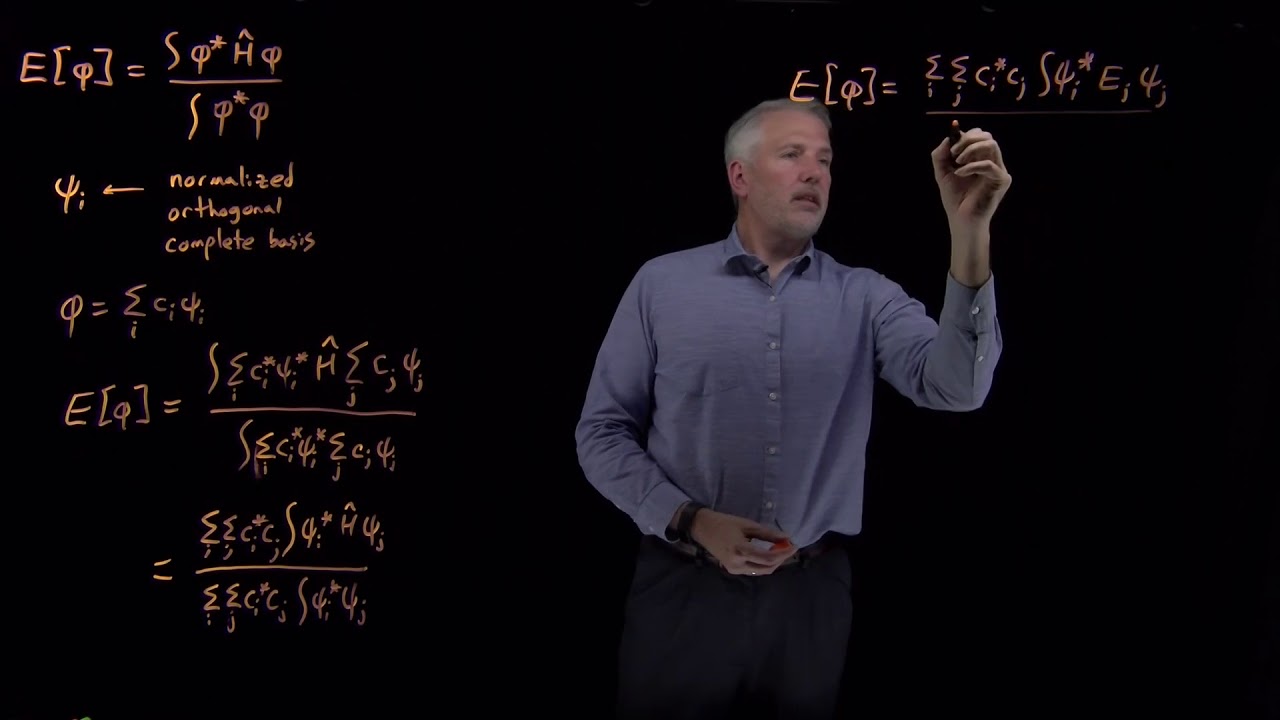 E[φ] = ∫ φ* Ĥ φ / ∫ φ* φ
ψᵢ ← normalized
orthogonal
complete basis
φ = Σᵢ cᵢ ψᵢ
E[φ] = ∫ Σᵢ cᵢ* ψᵢ* Ĥ Σⱼ cⱼ ψⱼ / ∫ Σᵢ cᵢ* ψᵢ* Σⱼ cⱼ ψⱼ
= Σᵢ Σⱼ cᵢ* cⱼ ∫ ψᵢ* Ĥ ψⱼ / Σᵢ Σⱼ cᵢ* cⱼ ∫ ψᵢ* ψⱼ
E[φ] = Σᵢ Σⱼ cᵢ* cⱼ ∫ ψᵢ* Eⱼ ψⱼ